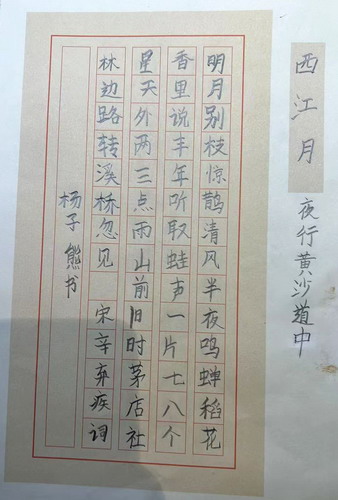 西江月
夜行黄沙道中
明月别枝惊鹊清风半夜鸣蝉稻花
香里说丰年听取蛙声一片七八个
星天外两三点雨山前旧时茅店社
林边路转溪桥忽见 宋辛弃疾词
杨子熊书